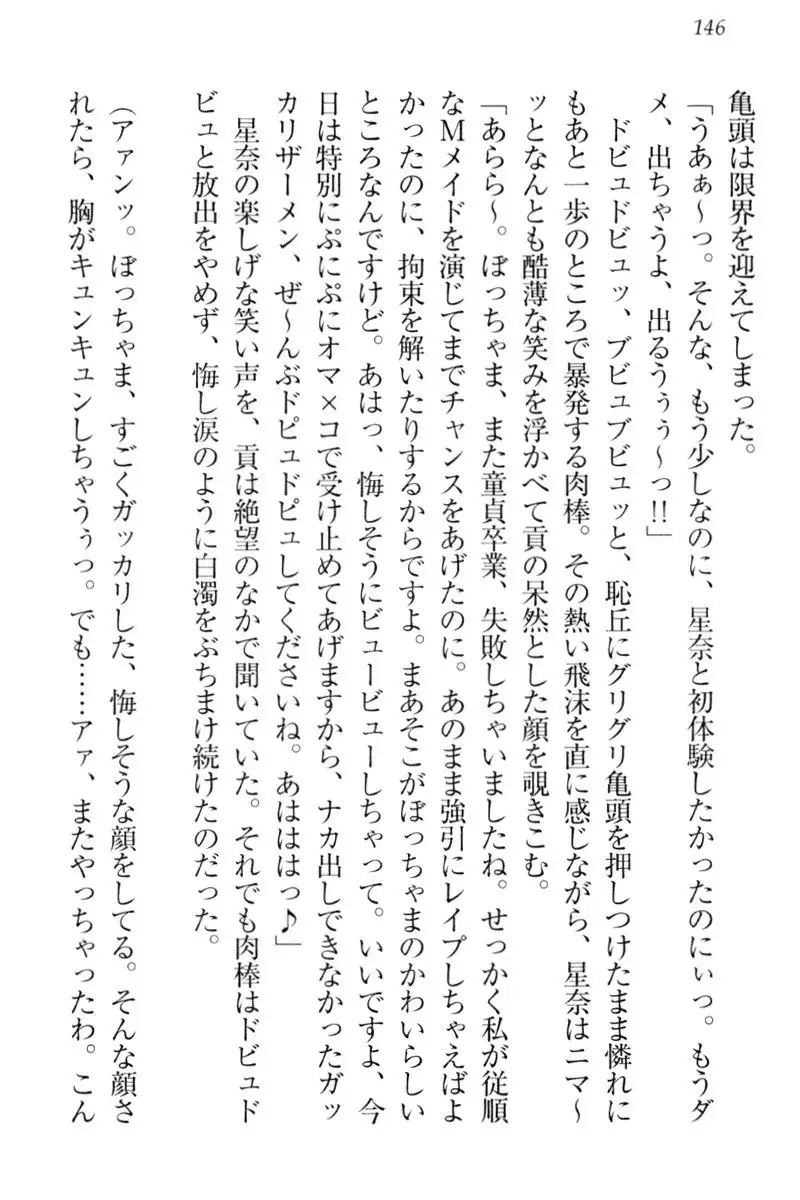 146
亀頭は限界を迎えてしまった。
「うあぁ～っ。そんな、もう少しなのに、星奈と初体験したかったのにぃっ。もうダ
メ、出ちゃうよ、出るうぅぅ～っ!!」
ドビュドビュッ、ブビュブビュッと、恥丘にグリグリ亀頭を押しつけたまま憐れに
もあと一歩のところで暴発する肉棒。その熱い飛沫を直に感じながら、星奈はニマ～
ッとなんとも酷薄な笑みを浮かべて貢の呆然とした顔を覗きこむ。
「あらら～。ぼっちゃま、また童貞卒業、失敗しちゃいましたね。せっかく私が従順
なＭメイドを演じてまでチャンスをあげたのに。あのまま強引にレイプしちゃえばよ
かったのに、拘束を解いたりするからですよ。まあそこがぼっちゃまのかわいらしい
ところなんですけど。あはっ、悔しそうにビュービューしちゃって。いいですよ、今
日は特別にぷにぷにオマ×コで受け止めてあげますから、ナカ出しできなかったガッ
カリザーメン、ぜ～んぶドピュドピュしてくださいね。あはははっ♪」
星奈の楽しげな笑い声を、貢は絶望のなかで聞いていた。それでも肉棒はドビュド
ビュと放出をやめず、悔し涙のように白濁をぶちまけ続けたのだった。
（アァンッ。ぼっちゃま、すごくガッカリした、悔しそうな顔をしてる。そんな顔さ
れたら、胸がキュンキュンしちゃうぅっ。でも……アァ、またやっちゃったわ。こん